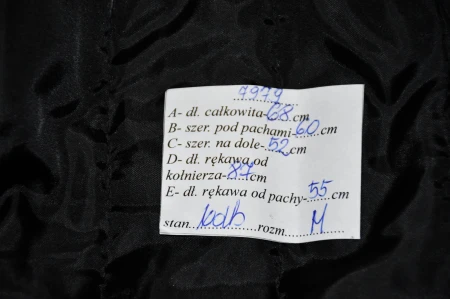 7979
A- dł. całkowita-68cm
B- szer. pod pachami-60cm
C- szer. na dole-52cm
D- dł. rękawa od
kolnierza-87cm
E- dł. rękawa od pachy-55cm
stan...........rozm...M....